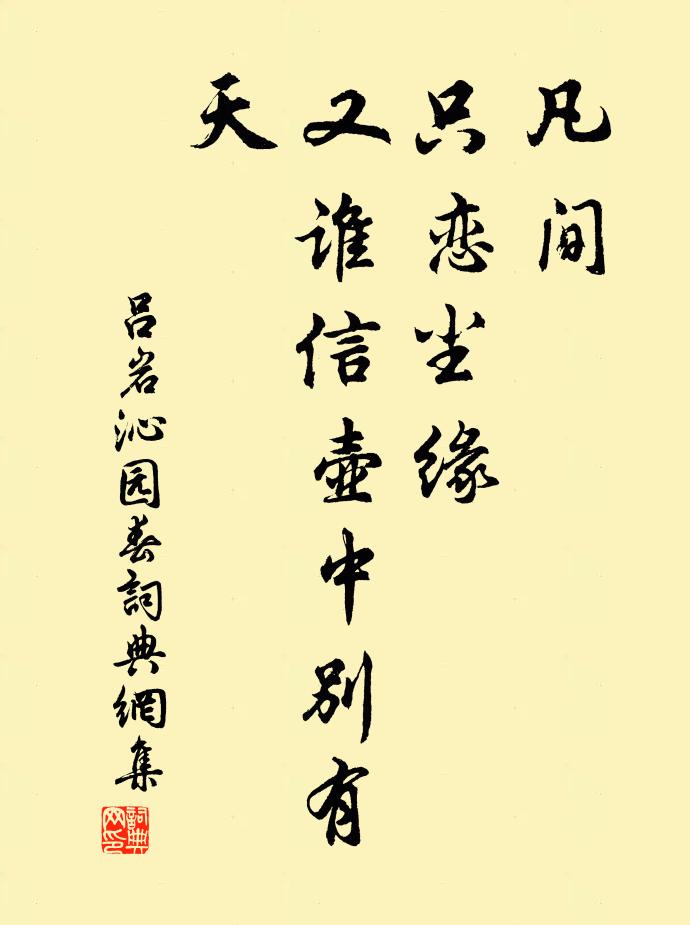 凡间
只恋尘缘
又谁信壶中别有
天
吕岩沁园春詞典網集
詞典网印